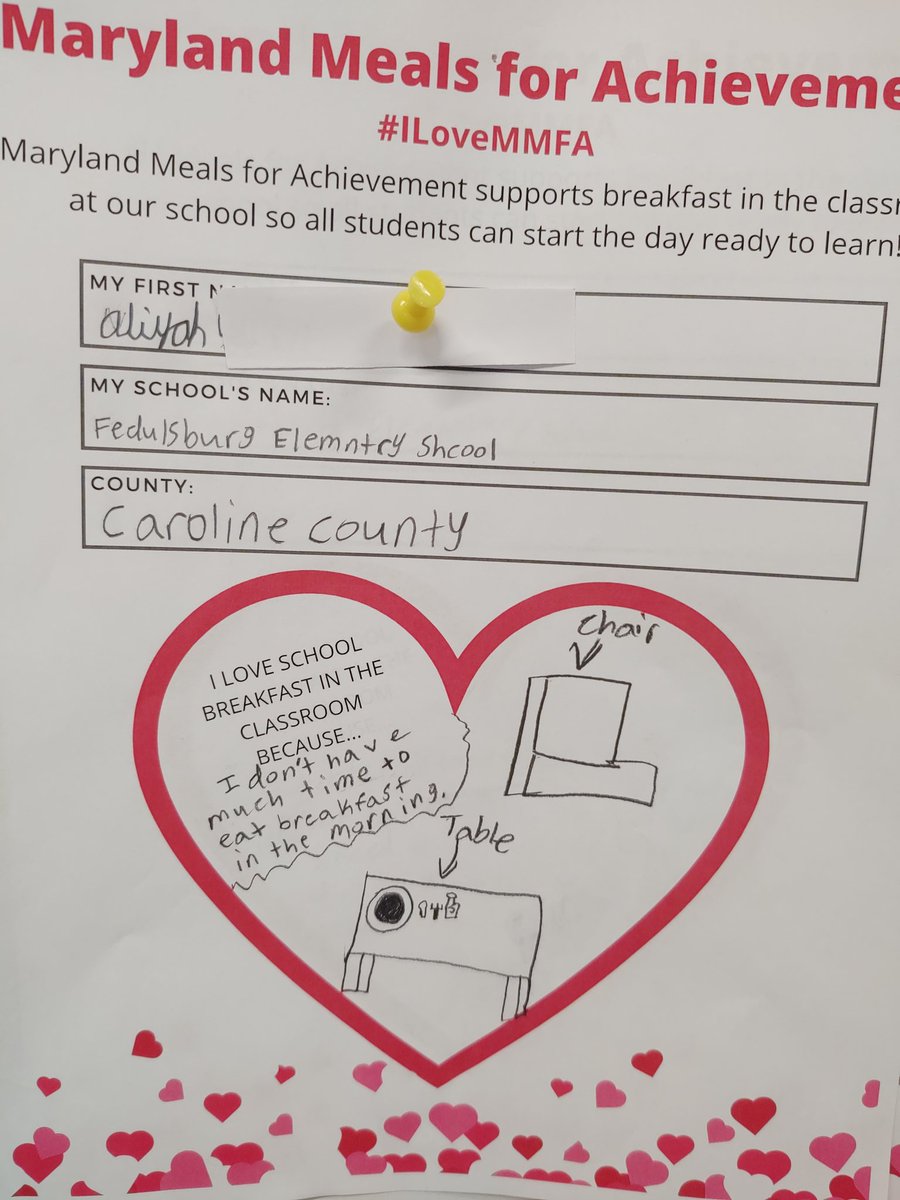 Maryland Meals for Achieveme
#ILoveMMFA
Maryland Meals for Achievement supports breakfast in the classr
at our school so all students can start the day ready to learn!
MY FIRST N
aliyah
MY SCHOOL'S NAME:
Fedulsburg Elemntry Shcool
COUNTY:
Caroline county
I LOVE SCHOOL
BREAKFAST IN THE
CLASSROOM
BECAUSE...
I don't have
much time to
eat breakfast
in the morning.
chair
Table